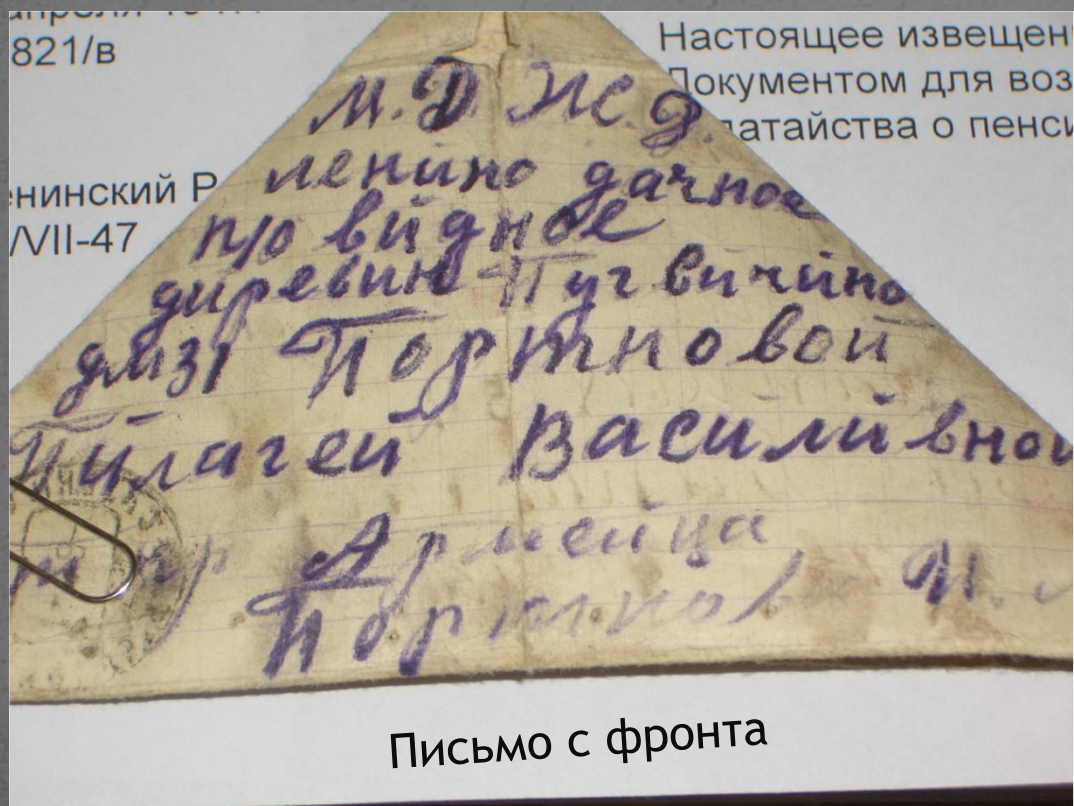 821/в
Настоящее извещен
Документом для воз
датайства о пенси
енинский Р
/VII-47
М.Д.Ж.Д.
ленино дачное
п/о видное
диревню Пугвичино
дмз1 Портновой
Пилагей Василивной
кр Армейца
Портнова И.
Письмо с фронта